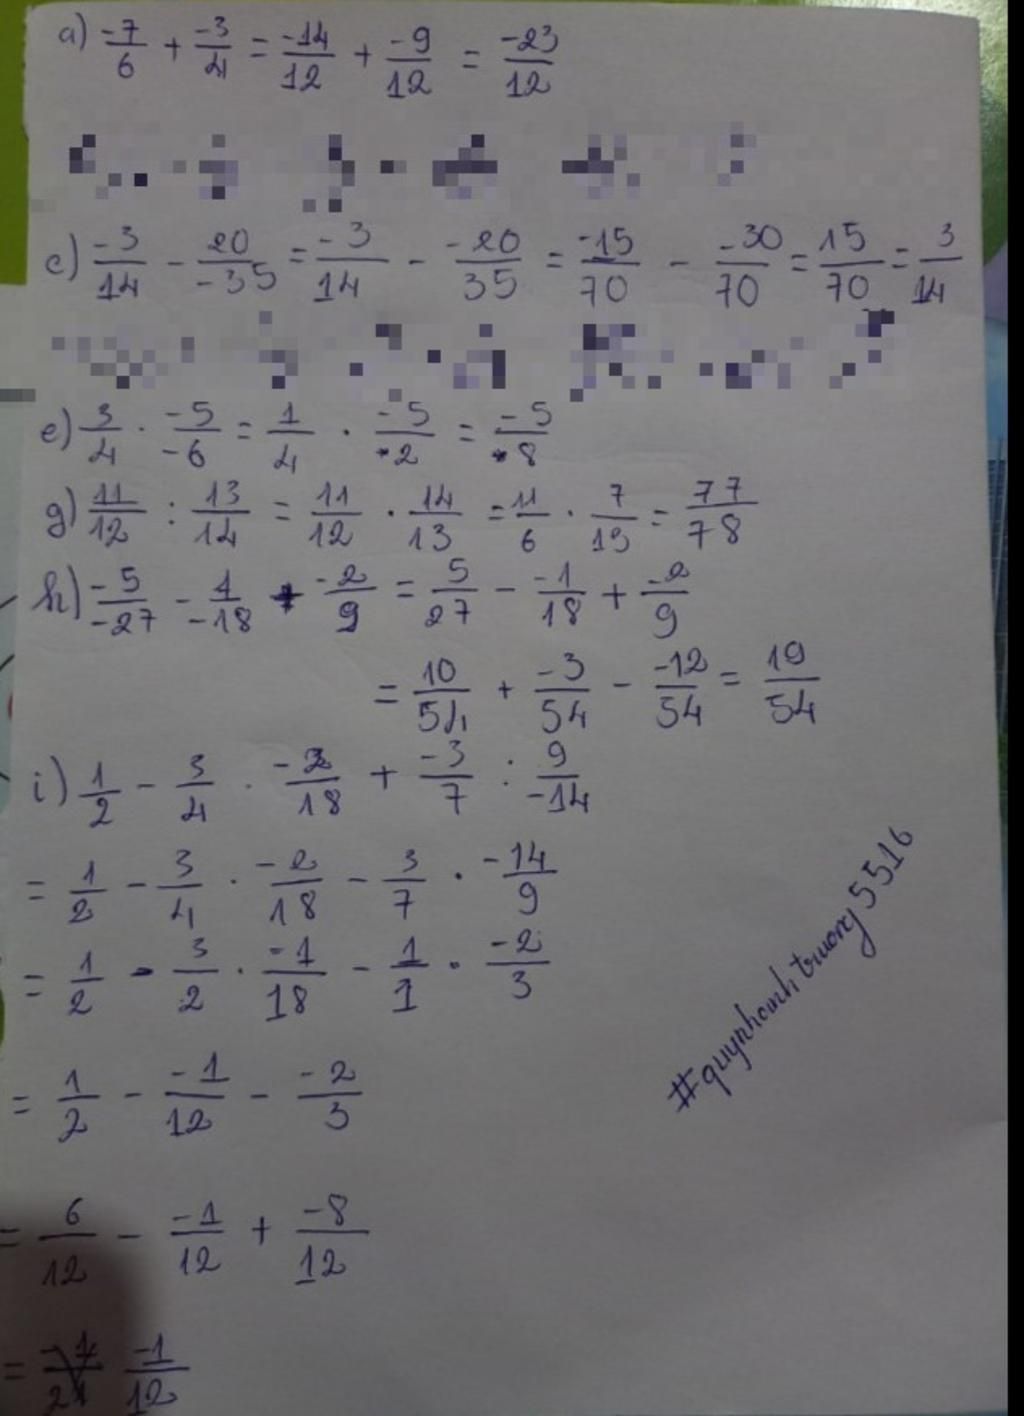 a) -7/6 + -3/4 = -14/12 + -9/12 = -23/12
c) -3/14 - 20/-35 = -3/14 - -20/35 = -15/70 - -30/70 = 15/70 = 3/14
e) 3/4 . -5/-6 = 1/4 . -5/-2 = -5/-8
g) 11/12 : 13/14 = 11/12 . 14/13 = 11/6 . 7/13 = 77/78
h) -5/-27 - 1/-18 + -2/9 = 5/27 - -1/18 + -2/9
= 10/54 + -3/54 - -12/54 = 19/54
i) 1/2 - 3/4 . -2/18 + -3/7 : 9/-14
= 1/2 - 3/4 . -2/18 - 3/7 . -14/9
= 1/2 - 3/2 . -1/18 - 1/1 . -2/3
= 1/2 - -1/12 - -2/3
= 6/12 - -1/12 + -8/12
= -1/12
#quynhanhtruong5516